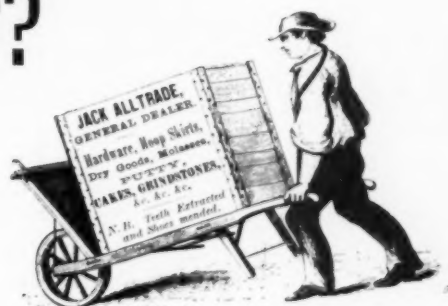 ?
JACK ALLTRADE,
GENERAL DEALER.
Hardware, Hoop Skirts,
Dry Goods, Molasses,
PUTTY,
CAKES, GRINDSTONES,
&c. &c. &c.
N.B. Teeth Extracted
and Shoes mended.